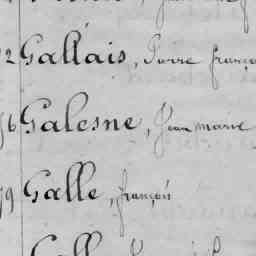 2 Gallais, Pierre franço
6 Galesne, Jean marie
9 Galle, françois